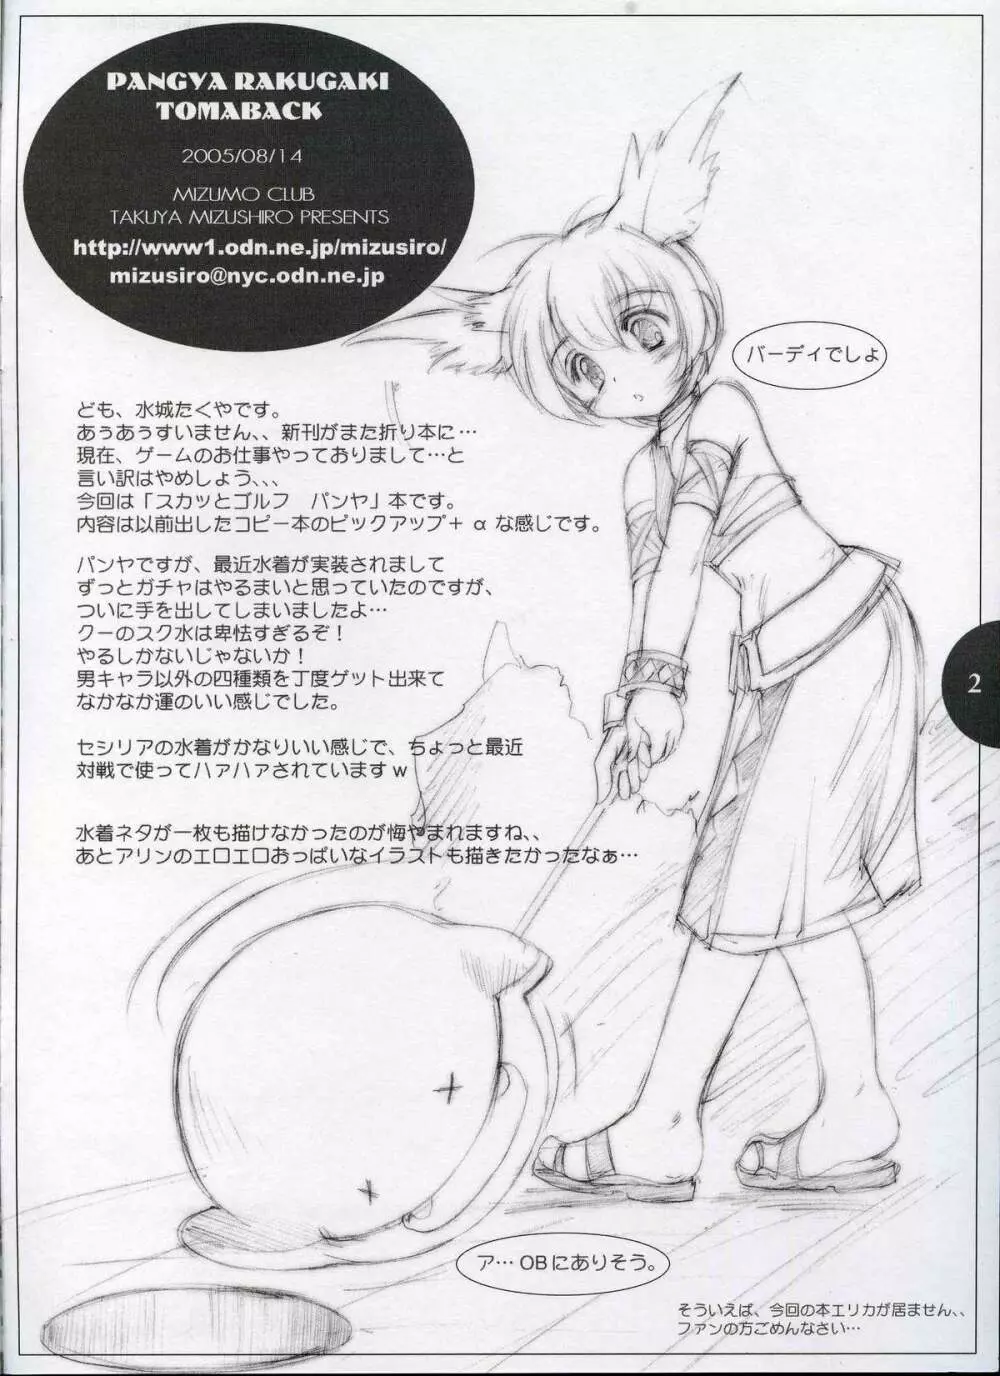 PANGYA RAKUGAKI
TOMABACK
2005/08/14
MIZUMO CLUB
TAKUYA MIZUSHIRO PRESENTS
http://www1.odn.ne.jp/mizusiro/
mizusiro@nyc.odn.ne.jp
バーディでしょ
ども、水城たくやです。
あぅあぅすいません、、新刊がまた折り本に…
現在、ゲームのお仕事やっておりまして…と
言い訳はやめしょう、、、
今回は「スカッとゴルフ　パンヤ」本です。
内容は以前出したコピー本のピックアップ＋αな感じです。
パンヤですが、最近水着が実装されまして
ずっとガチャはやるまいと思っていたのですが、
ついに手を出してしまいましたよ…
クーのスク水は卑怯すぎるぞ！
やるしかないじゃないか！
男キャラ以外の四種類を丁度ゲット出来て
なかなか運のいい感じでした。
セシリアの水着がかなりいい感じで、ちょっと最近
対戦で使ってハァハァされていますｗ
水着ネタが一枚も描けなかったのが悔やまれますね、、
あとアリンのエロエロおっぱいなイラストも描きたかったなぁ…
2
ア…OBにありそう。
そういえば、今回の本エリカが居ません、、
ファンの方ごめんなさい…